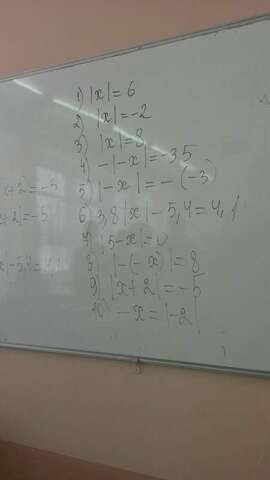 1) |x|=6
2) |x|=-2
3) |x|=8
4) -|-x|=-35
5) |-x|=-(-3)
6) 3,8|x|-5,4=4,1
7) |5-x|=0
8) |-(-x)|=8
9) |x+2|=-5
10) -x=|-2|